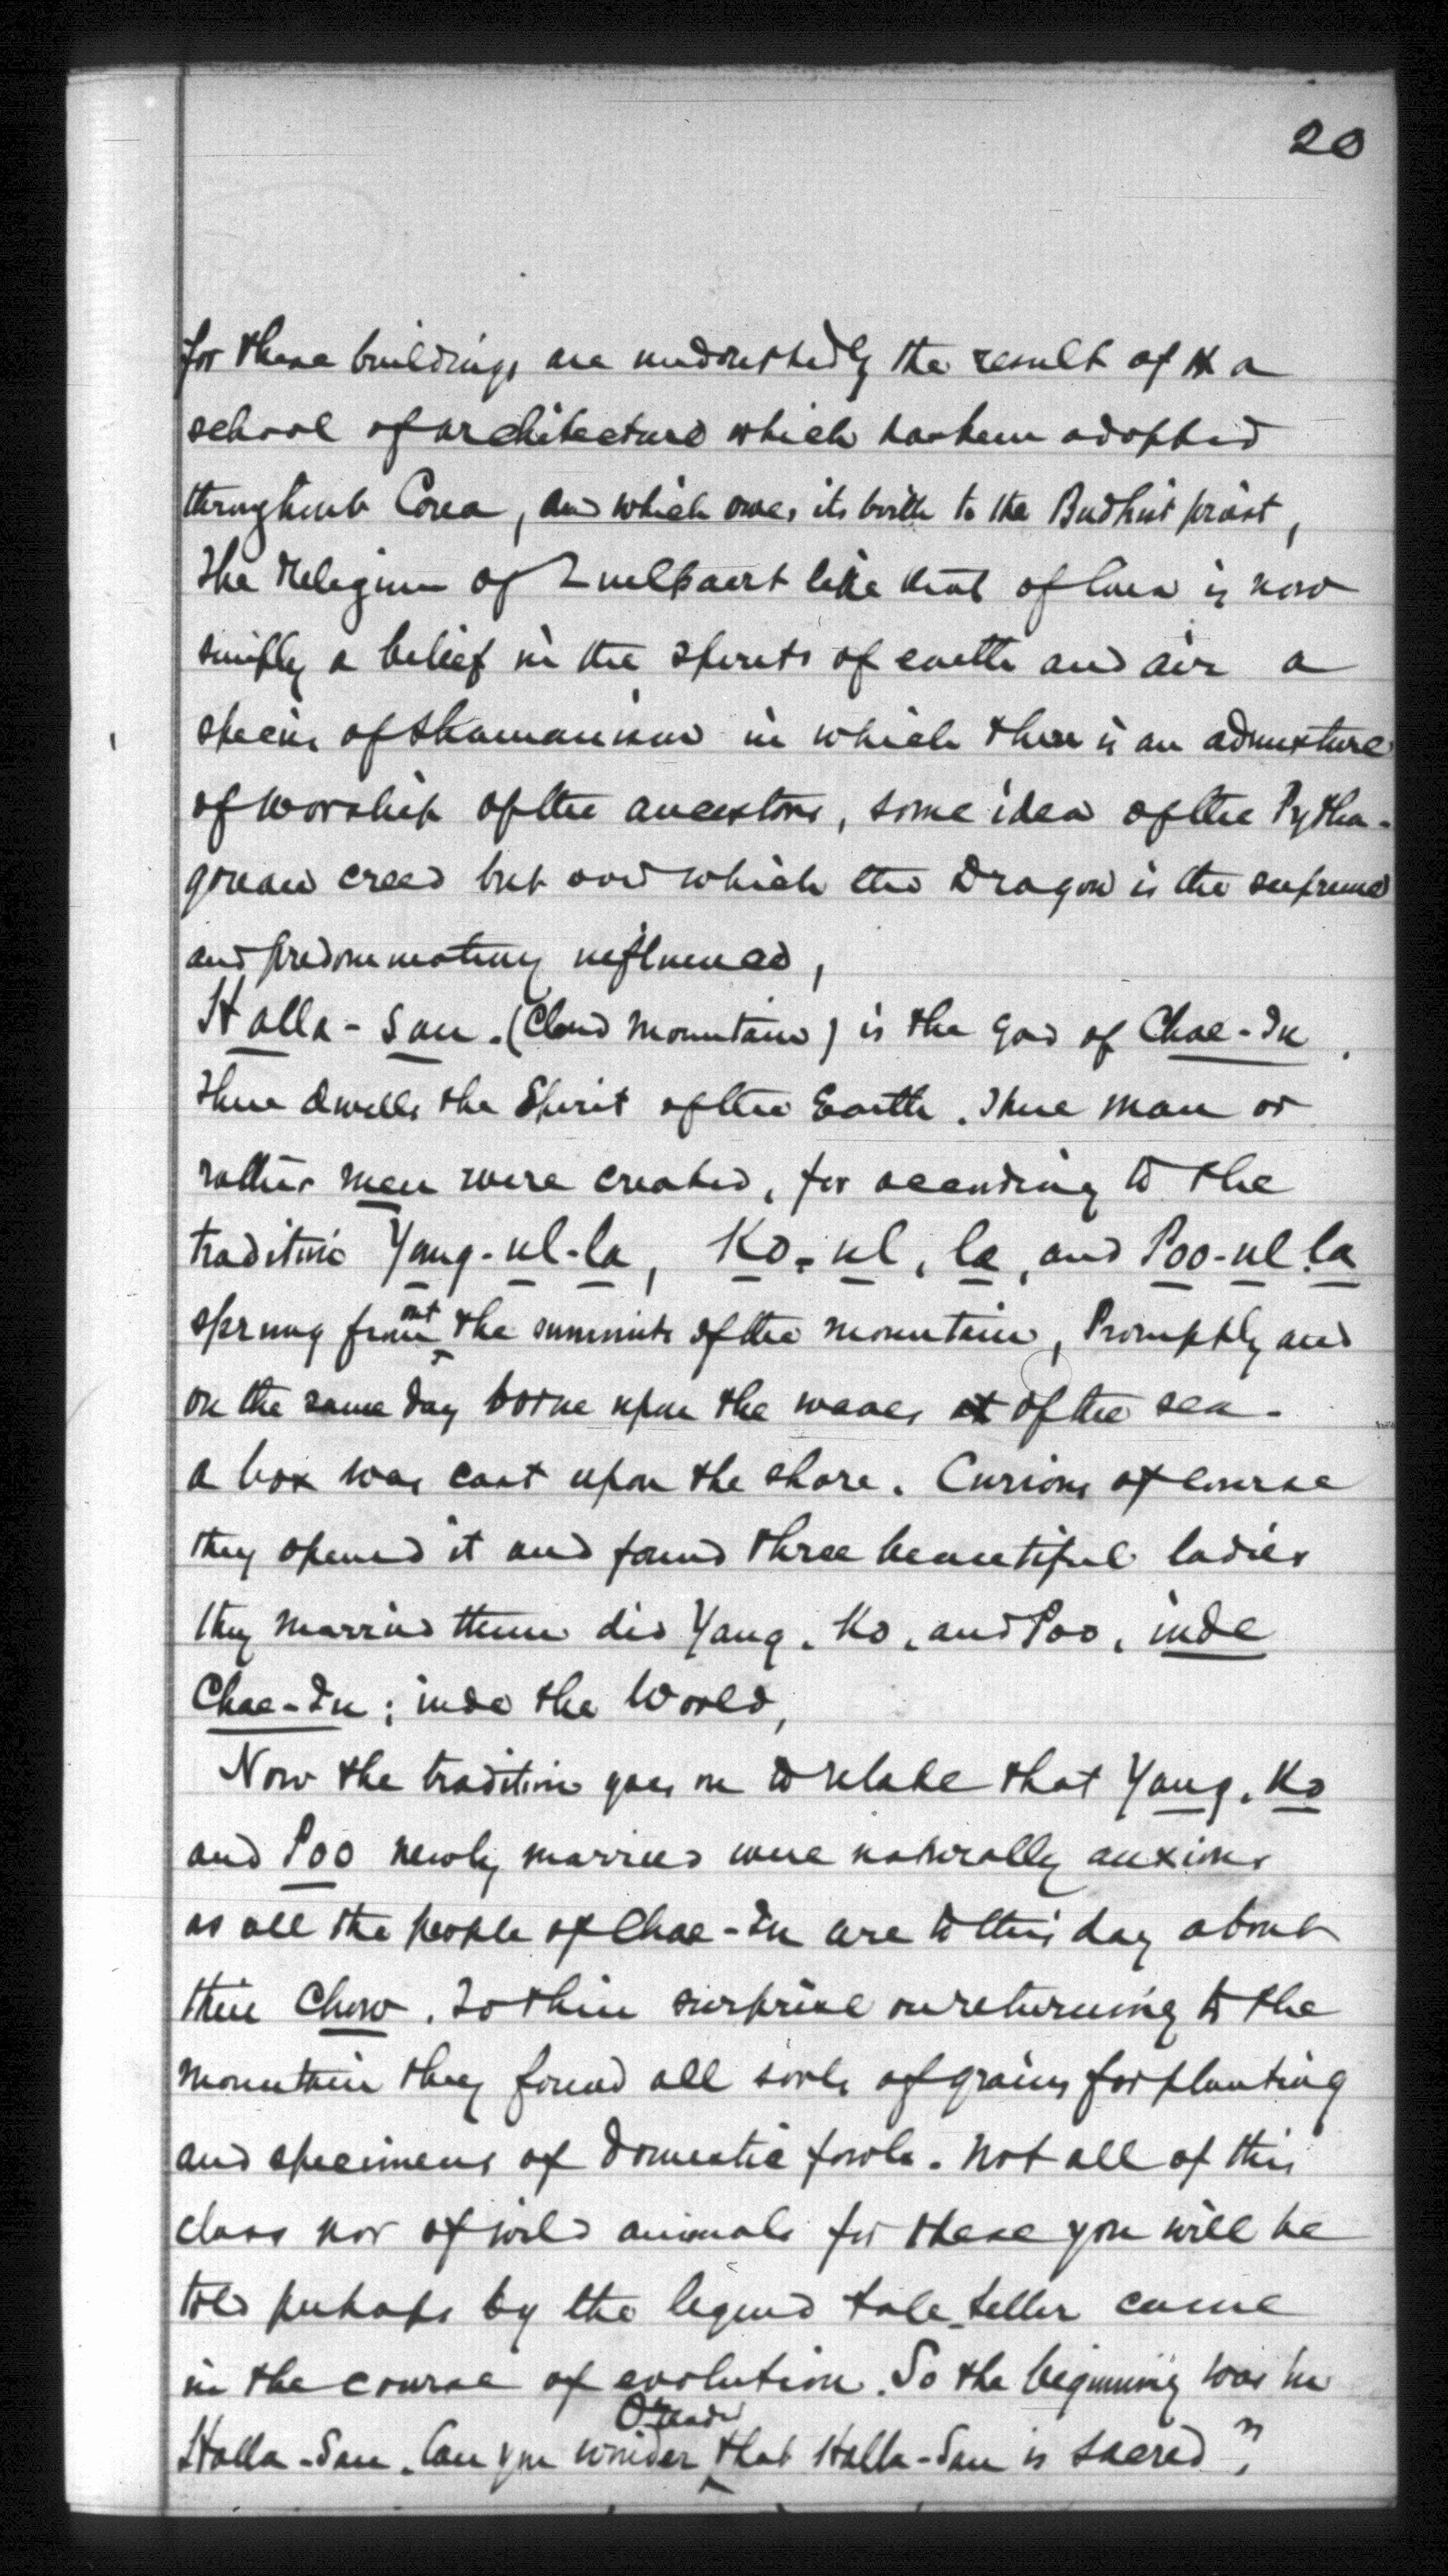 20
for these buildings are undoubtedly the result of a
school of architecture which has been adopted
throughout Corea, and which owes its birth to the Budhist priest,
The Religion of Quelpaert like that of Corea is now
simply a belief in the spirits of earth and air a
species of Shamanism in which there is an admixture
of worship of the ancestors, some idea of the Pytha-
gorean creed but over which the Dragon is the supreme
and predominating influence,
Halla-San. (Cloud Mountain) is the god of Chae-Ju.
There dwells the Spirit of the Earth. There man or
rather men were created, for according to the
tradition Yang-ul-la, Ko-ul, la, and Poo-ul.la
sprung from out the summit of the mountain, Promptly and
on the same day borne upon the waves of the sea-
a box was cast upon the shore. Curious of course
they opened it and found three beautiful ladies
they married them did Yang, Ko, and Poo, inde
Chae-Ju; inde the World,
Now the tradition goes on to relate that Yang, Ko
and Poo newly married were naturally anxious
as all the people of Chae-Ju are to this day about
their Chow. To their surprise on returning to the
mountain they found all sorts of grains for planting
and specimens of domestic fowls. Not all of this
class nor of wild animals for these you will be
told perhaps by the legend tale-teller came
in the course of evolution. So the beginning was in
Halla-San. Can you wonder O reader that Halla-San is sacred?